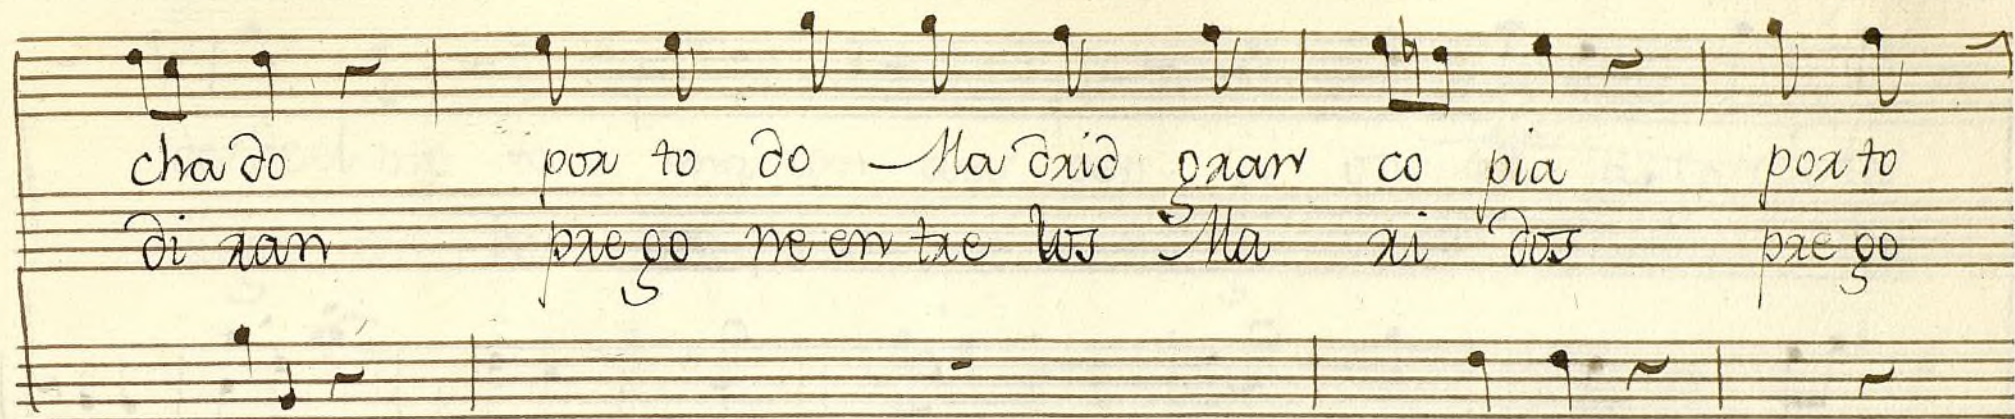 cha do por to do Ma drid gran co pia por to
di ran pre go ne en tre los Ma ri dos pre go